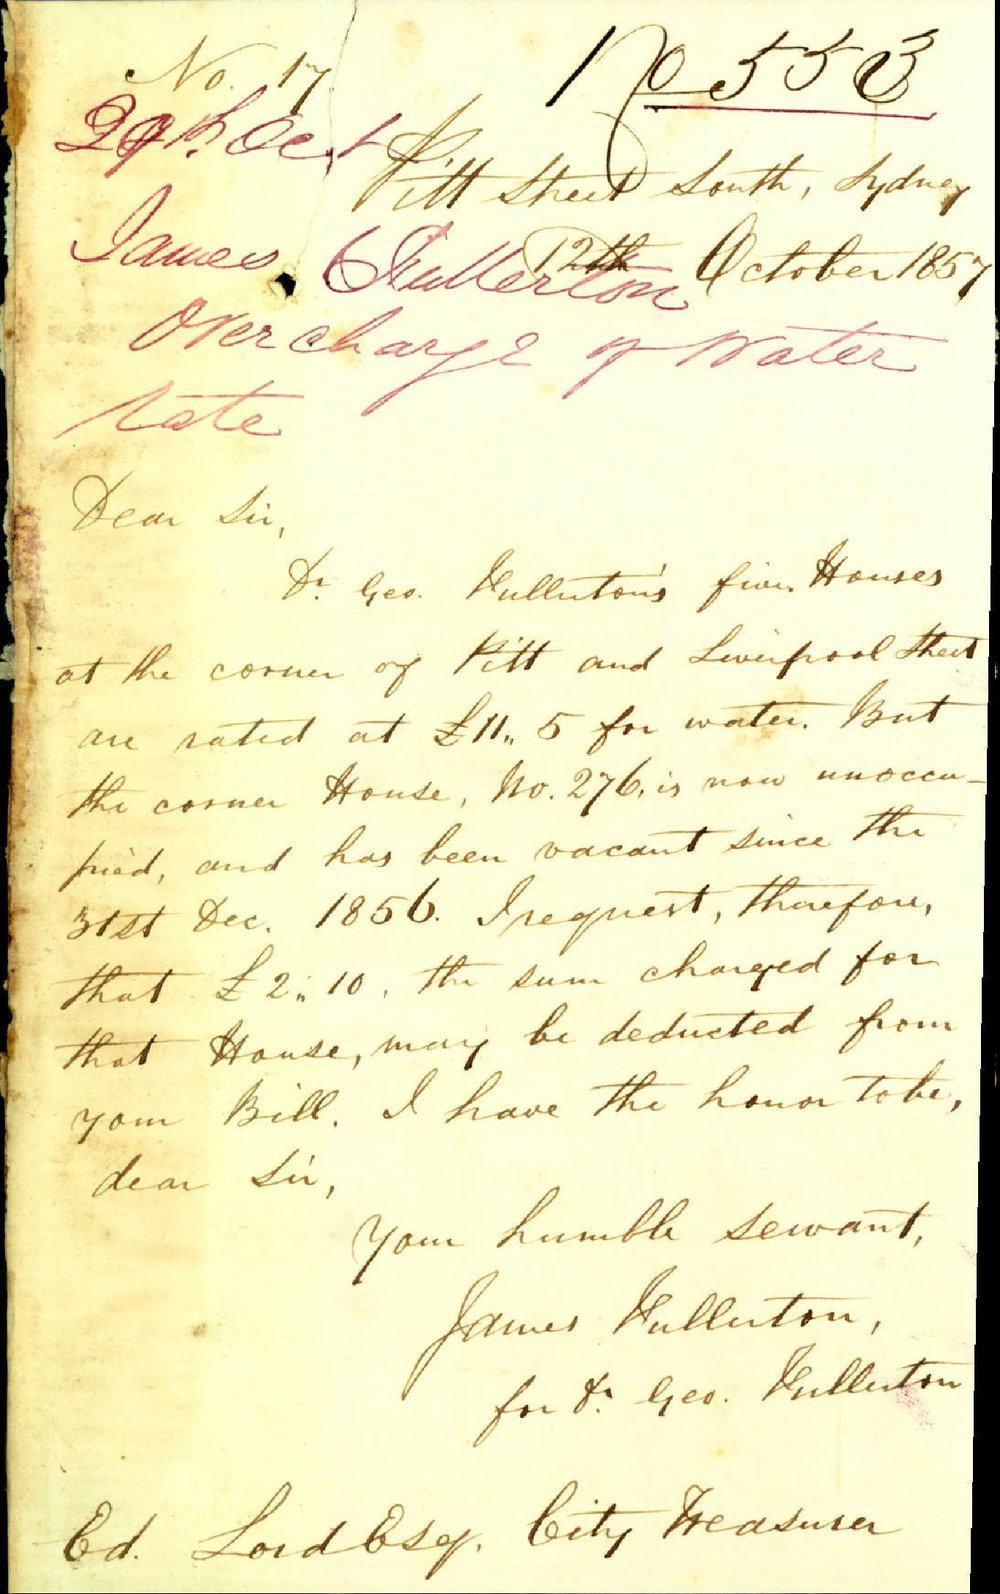 No. 17
No 553
29th. Oct
Pitt Street South, Sydney
12th October 1857
James Fullerton
Overcharge of Water
rate
Dear Sir,
Dr. Geo. Fullerton's five Houses
at the corner of Pitt and Liverpool Street
are rated at £11,, 5 for water. But
the corner House, No. 276, is now unoccu-
pied, and has been vacant since the
31st Dec. 1856. I request, therefore,
that £2,, 10, the sum charged for
that House, may be deducted from
your Bill. I have the honor to be,
dear Sir,
Your humble servant,
James Fullerton,
for Dr. Geo. Fullerton
Ed. Lord Esq. City Treasurer